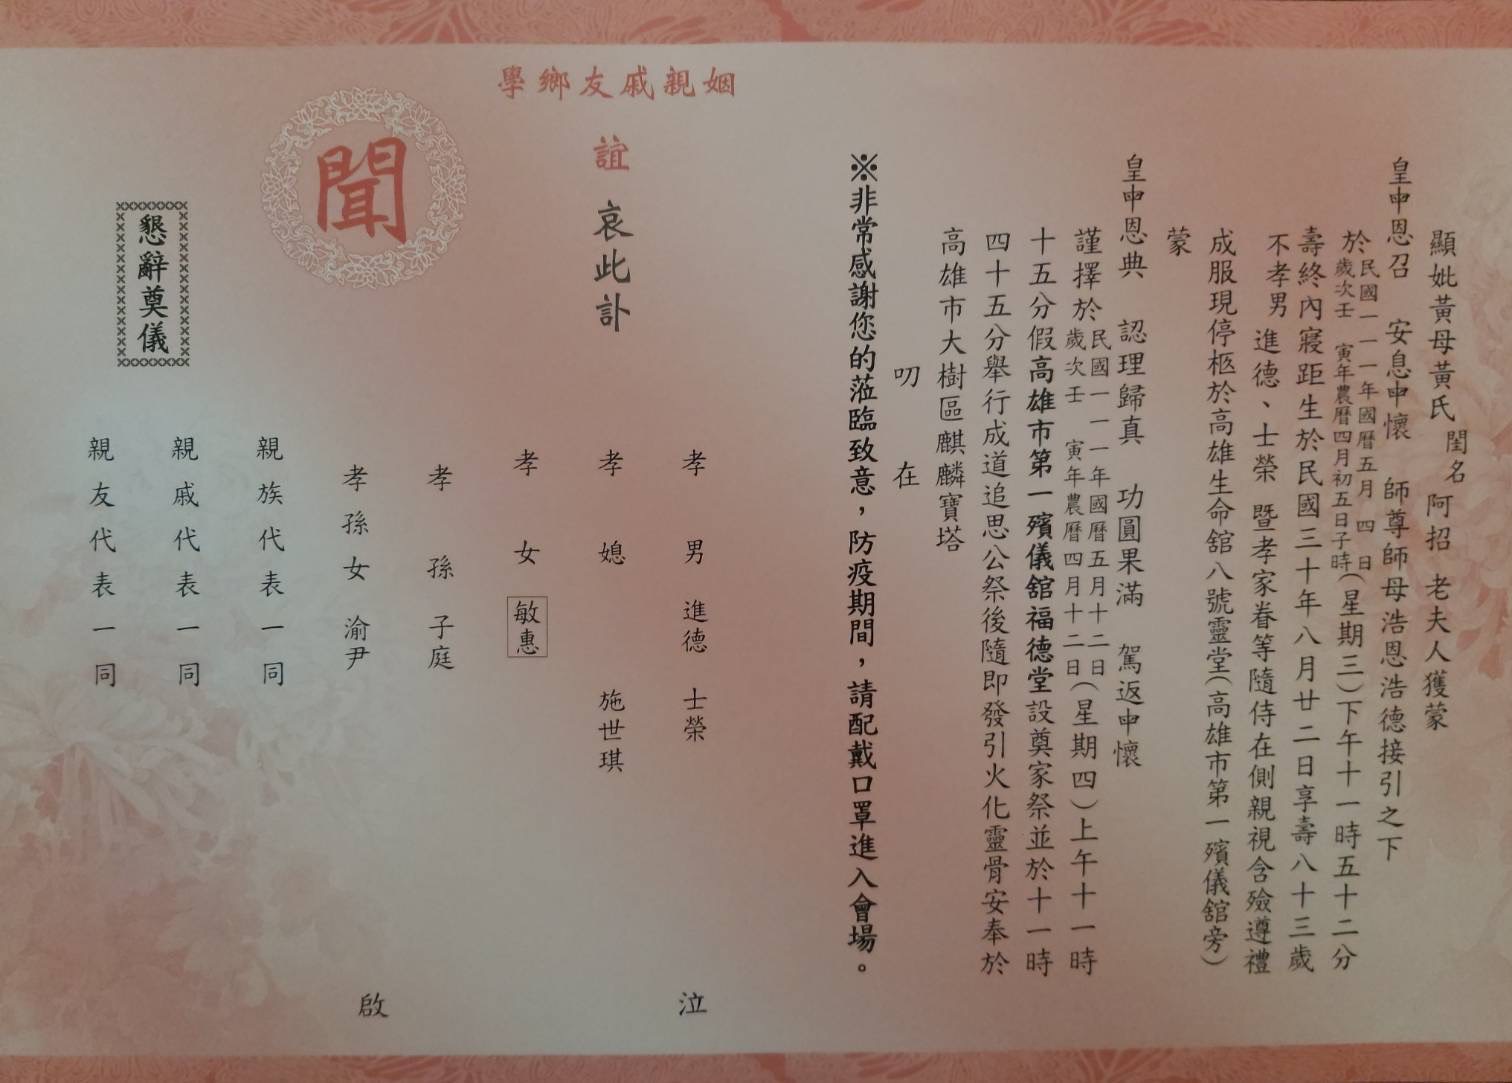 顯妣黃母黃氏閨名阿招 老夫人獲蒙
皇申恩召 安息申懷 師尊師母浩恩浩德接引之下
於民國一一一年國曆五月四日歲次壬寅年農曆四月初五日子時(星期三)下午十一時五十二分
壽終內寢距生於民國三十年八月廿二日享壽八十三歲
不孝男 進德、士榮 暨孝家眷等隨侍在側親視含殮遵禮
成服現停柩於高雄生命舘八號靈堂(高雄市第一殯儀舘旁)
蒙
皇申恩典 認理歸真 功圓果滿 駕返申懷
謹擇於民國一一一年國曆五月十二日歲次壬寅年農曆四月十二日(星期四)上午十一時
十五分假高雄市第一殯儀舘福德堂設奠家祭並於十一時
四十五分舉行成道追思公祭後隨即發引火化靈骨安奉於
高雄市大樹區麒麟寶塔
叨 在
※非常感謝您的蒞臨致意，防疫期間，請配戴口罩進入會場。
姻親戚友鄉學
誼 哀此訃
聞
孝男 進德 士榮 泣
孝媳 施世琪
孝女 敏惠
孝孫 子庭
孝孫女 渝尹 啟
親族代表一同
親戚代表一同
親友代表一同
懇辭奠儀